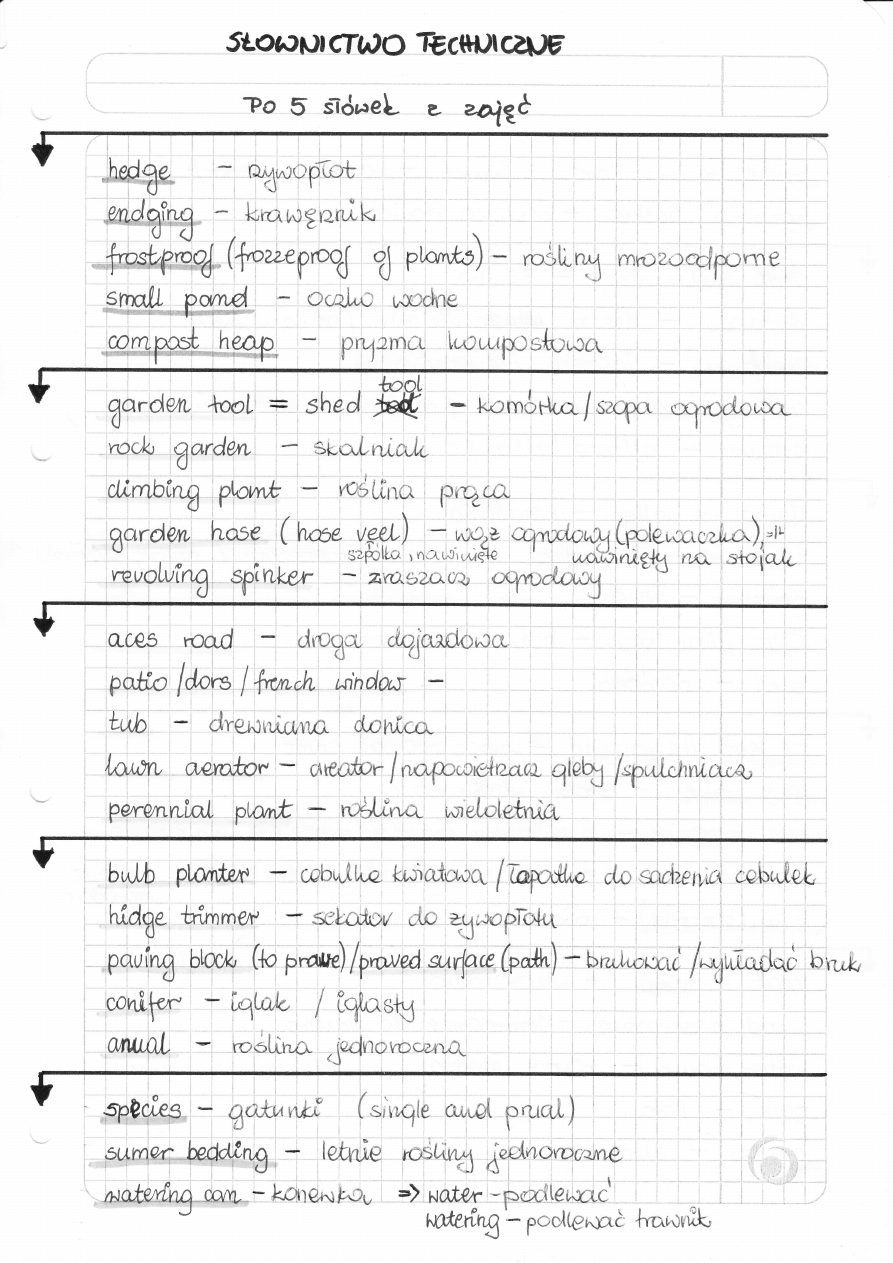 SŁOWNICTWO TECHNICZNE
Po 5 słówek z zajęć
hedge – żywopłot
endging – krawężnik
frostproof (frozzeproof of plants) – rośliny mrozoodporne
small pond – oczko wodne
compost heap – pryzma kompostowa
tool
garden tool = shed – komórka/szopa ogrodowa
rock garden – skalniak
climbing plant – roślina pnąca
garden hose (hose veel) – wąż ogrodowy (polewaczka),
szpólka, nawinięte nawinięty na stojak
revolving spinker – zraszacz ogrodowy
aces road – droga dojazdowa
patio /dors / french window –
tub – drewniana donica
lawn aerator – areator /napowietrzacz gleby /spulchniacz
perennial plant – roślina wieloletnia
bulb planter – cebulka kwiatowa /łapatka do sadzenia cebulek
hidge trimmer – sekator do żywopłotu
paving block (to prawe)/praved surface (path) – brukować /wykładać bruk
conifer – iglak / iglasty
anual – roślina jednoroczna
species – gatunki (single and prual)
sumer bedding – letnie rośliny jednoroczne
watering can – konewka => water – podlewać
watering – podlewać trawnik